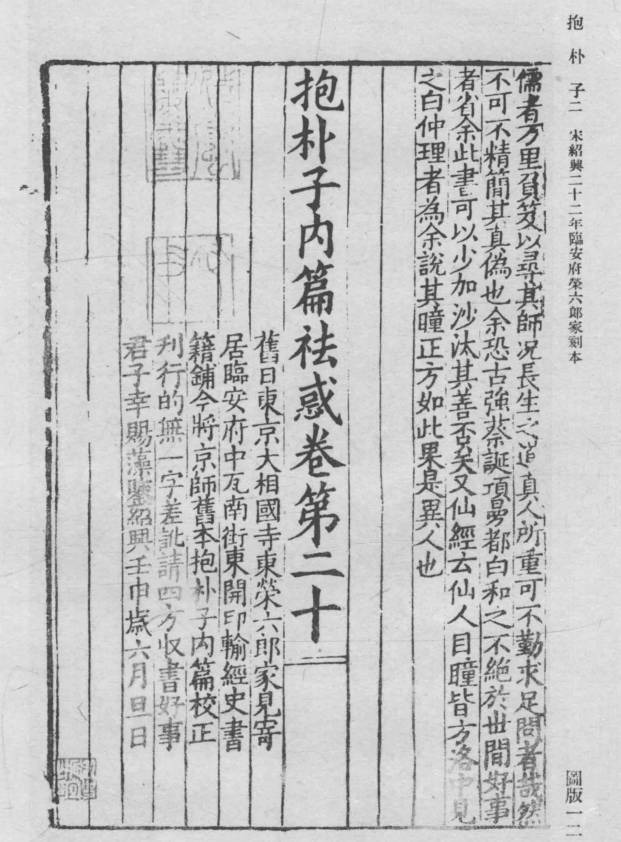 抱朴子二　宋紹興二十二年臨安府榮六郎家刻本
儒者万里負笈以尋其師况長生之道真人所重可不勤求足問者哉然
不可不精簡其真偽也余恐古強蔡誕項曼都白和之不絶於世間好事
者省余此書可以少加沙汰其善否矣又仙經云仙人目瞳皆方洛中見
之白仲理者為余說其瞳正方如此果是異人也
抱朴子内篇祛惑卷第二十
舊日東京大相國寺東榮六郎家見寄
居臨安府中瓦南街東開印輸經史書
籍鋪今將京師舊本抱朴子内篇校正
刋行的無一字差訛請四方收書好事
君子幸賜藻鑒紹興壬申歲六月旦日
圖版一二